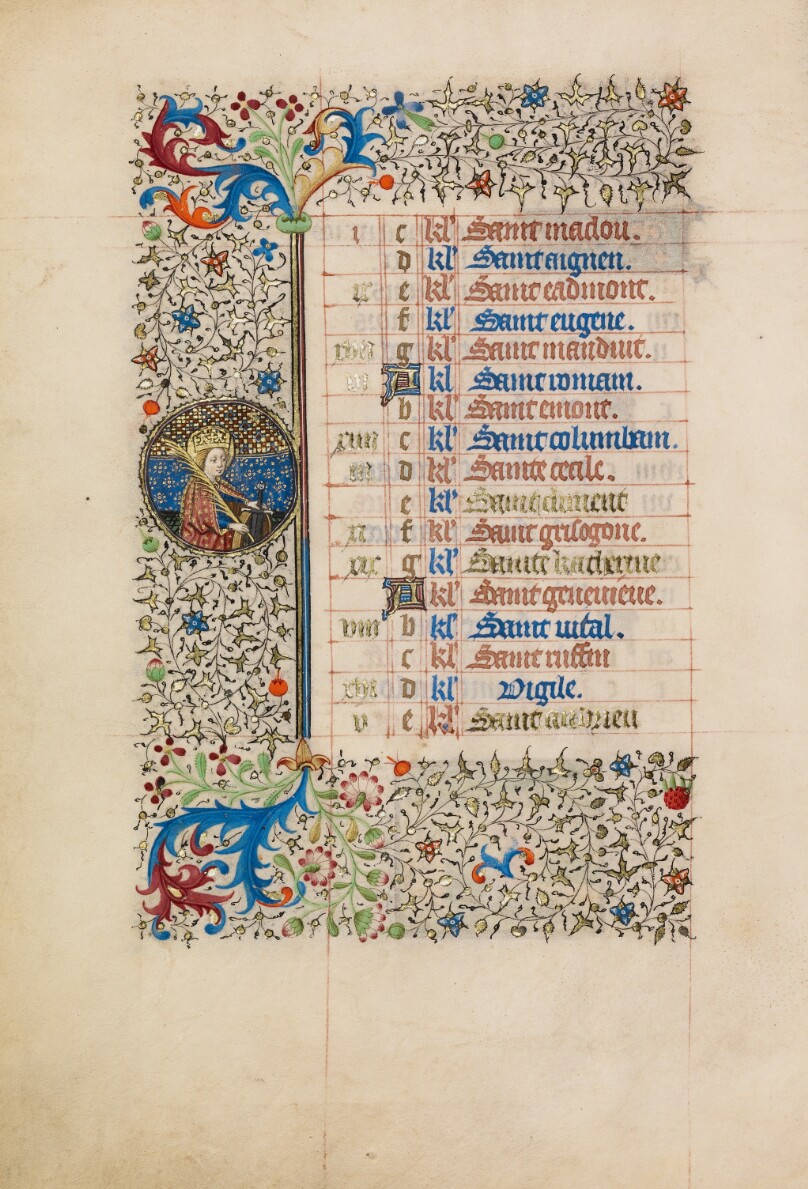 i c kl' Saint madou.
d kl' Saint aignen.
ix e kl' Saint eadmont.
f kl' Saint eugene.
xvii g kl' Saint mauduit.
vi A kl Saint romain.
b kl' Saint emont.
xiiii c kl' Saint columbain.
iii d kl' Sainte cecile.
e kl' Saint clement
xi f kl' Saint grisogone.
xix g kl' Sainte katherine
A kl' Saint genevieve.
viii b kl' Saint vital.
c kl' Saint ruffin
xvi d kl' Vigile.
v e kl' Saint andrieu